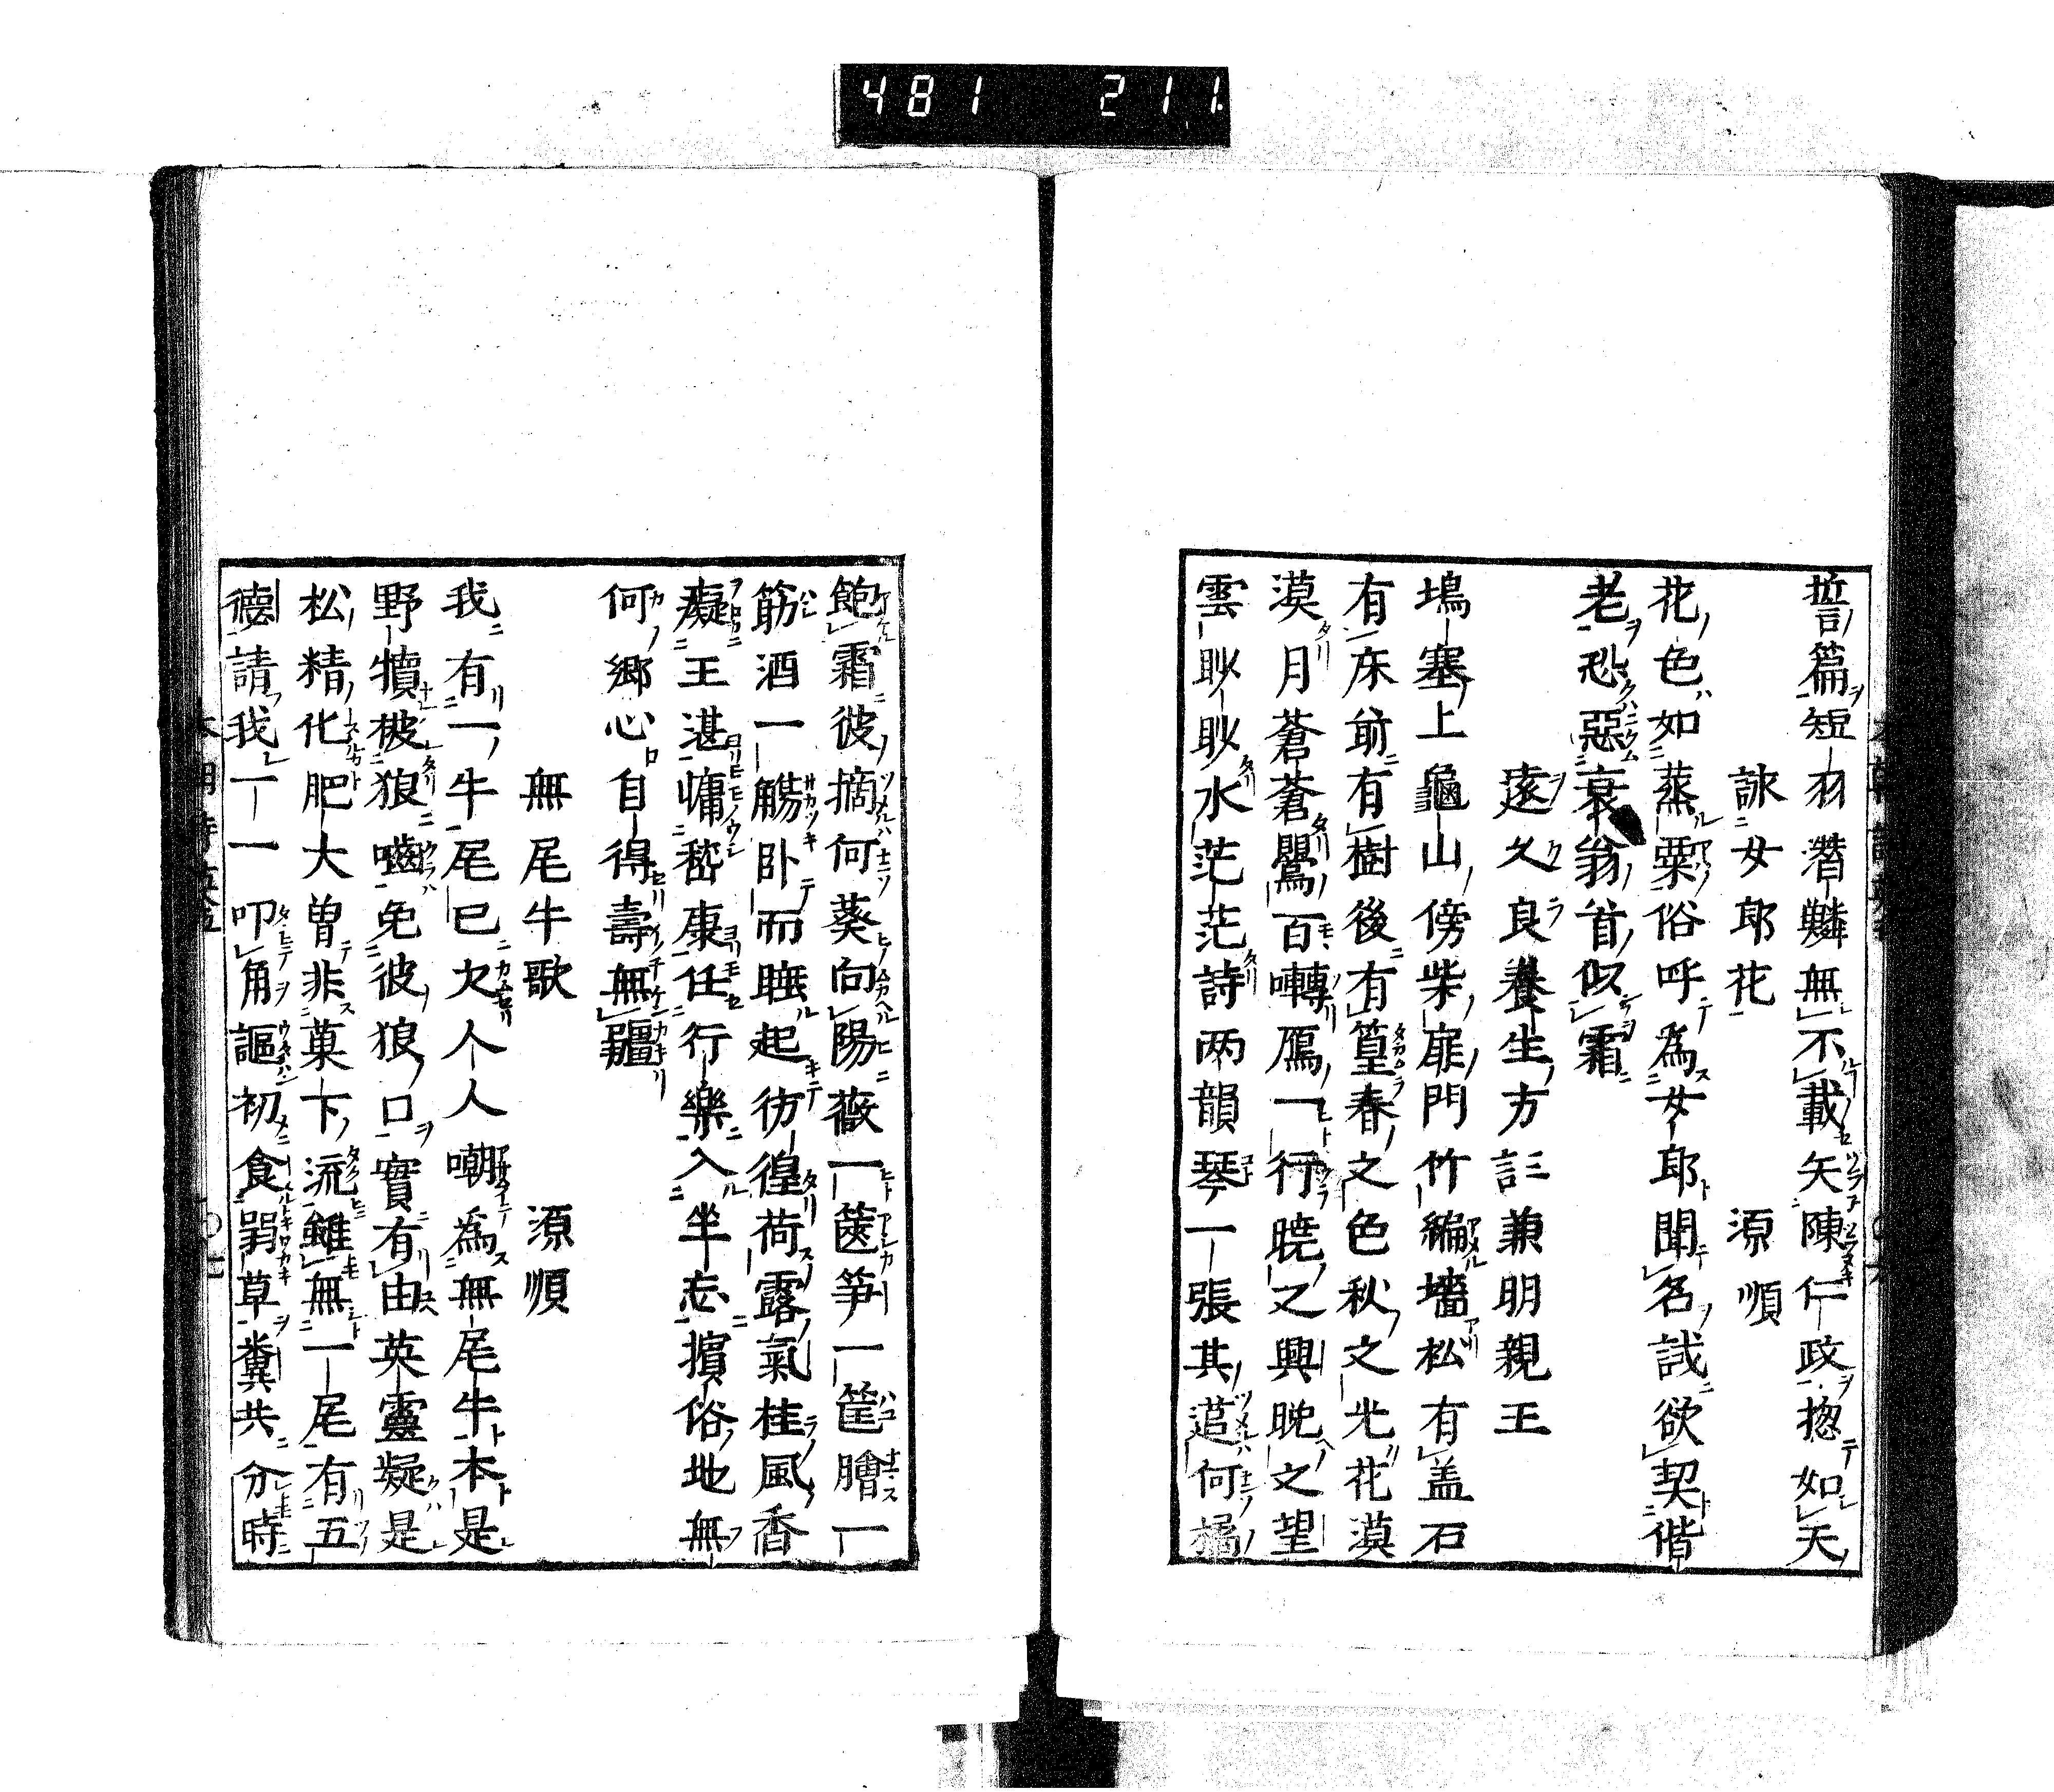 481 211.
誓篇短羽潛鱗無不載矢陳仁政揔如天
詠女郎花 源順
花色如蒸粟俗呼為女郎聞名誠欲契偕
老恐惡衰翁首似霜
遠久良養生方 兼明親王
塢塞上龜山傍柴扉門竹編墻松有盖石
有床前有樹後有篁春之色秋之光花漠
漠月蒼蒼鸎百囀鴈一行曉之興晚之望
雲眇眇水茫茫詩兩韻琴一張其菹何橘
飽霜彼摘何葵向陽薇一篋笋一筐膾一
筯酒一觴卧而睡起彷徨荷露氣桂風香
癡王湛慵嵇康任行樂入坐忘擯俗地無
何鄉心自得壽無疆
無尾牛歌 源順
我有一牛尾已欠人人嘲為無尾牛本是
野犢被狼嚙免彼狼口實有由英靈疑是
松精化肥大曽非菓下流雖無一尾有五
德請我一一叩角謳初食芻草糞共分時